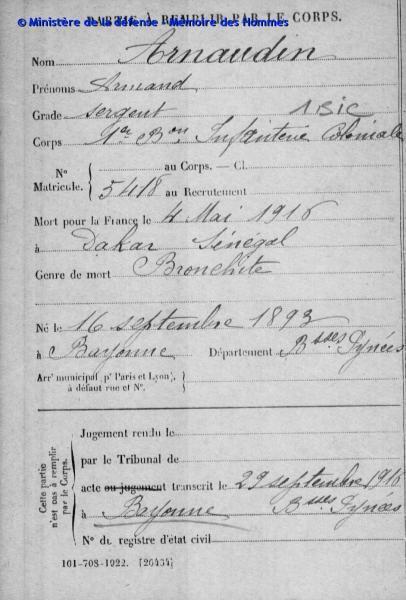 PARTIE À REMPLIR PAR LE CORPS.
© Ministère de la défense - Mémoire des Hommes
Nom Arnaudin
Prénoms Armand
Grade sergent 1 BIC
Corps 1er Bon Infanterie Coloniale
No Matricule. { au Corps. — Cl.
5418 au Recrutement
Mort pour la France le 4 Mai 1916
à Dakar Sénégal
Genre de mort Bronchite
Né le 16 septembre 1893
à Bayonne Département Bsses Pynées
Arrt municipal (pr Paris et Lyon), à défaut rue et No.
Cette partie n'est pas à remplir par le Corps.
Jugement rendu le
par le Tribunal de
acte ou jugement transcrit le 29 septembre 1916
à Bayonne Bsses Pynées
No du registre d'état civil
101-708-1922. [26434]